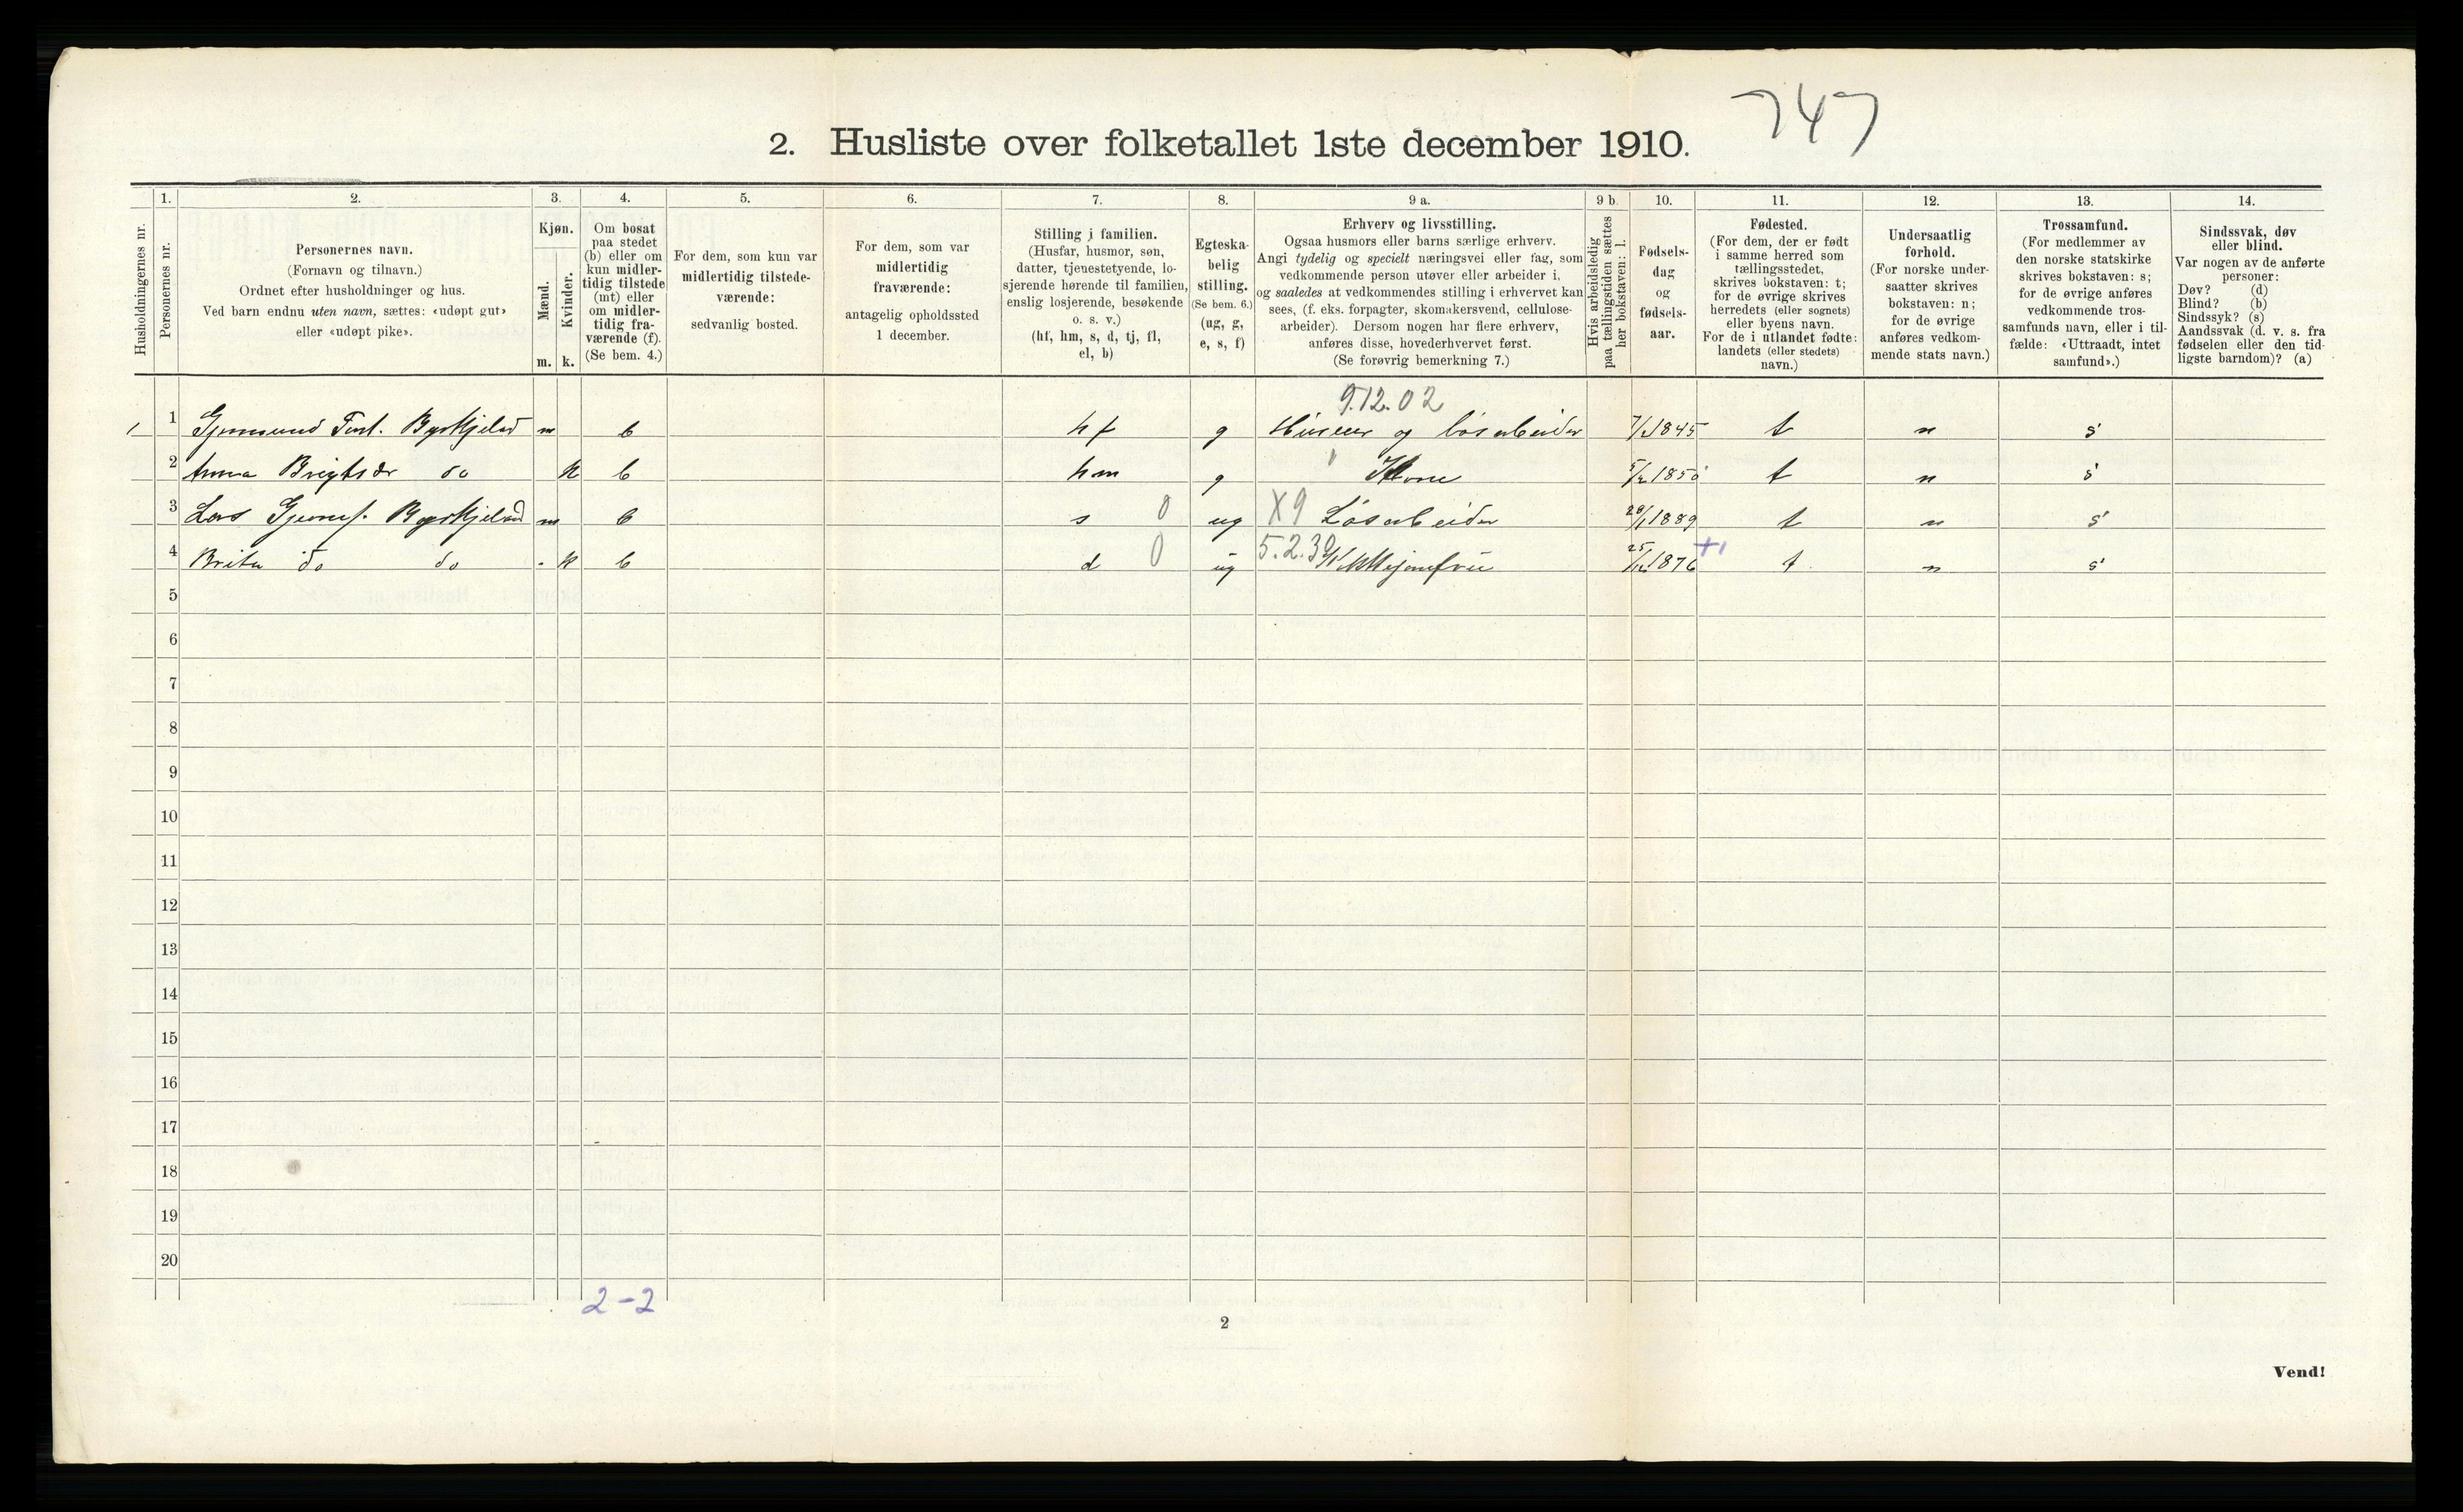 747
2. Husliste over folketallet 1ste december 1910.
Husholdningernes nr.
1. Personernes nr.
2. Personernes navn.
(Fornavn og tilnavn.)
Ordnet efter husholdninger og hus.
Ved barn endnu uten navn, sættes: «udøpt gut»
eller «udøpt pike».
3. Kjøn.
Mænd. m.
Kvinder. k.
4. Om bosat
paa stedet
(b) eller om
kun midler-
tidig tilstede
(mt) eller
om midler-
tidig fra-
værende (f).
(Se bem. 4.)
5. For dem, som kun var
midlertidig tilstede-
værende:
sedvanlig bosted.
6. For dem, som var
midlertidig
fraværende:
antagelig opholdssted
1 december.
7. Stilling i familien.
(Husfar, husmor, søn,
datter, tjenestetyende, lo-
sjerende hørende til familien,
enslig losjerende, besøkende
o. s. v.)
(hf, hm, s, d, tj, fl,
el, b)
8. Egteska-
belig
stilling.
(Se bem. 6.)
(ug, g,
e, s, f)
9 a. Erhverv og livsstilling.
Ogsaa husmors eller barns særlige erhverv.
Angi tydelig og specielt næringsvei eller fag, som
vedkommende person utøver eller arbeider i,
og saaledes at vedkommendes stilling i erhvervet kan
sees, (f. eks. forpagter, skomakersvend, cellulose-
arbeider). Dersom nogen har flere erhverv,
anføres disse, hovederhvervet først.
(Se forøvrig bemerkning 7.)
9 b. Hvis arbeidsledig
paa tællingstiden sættes
her bokstaven: l.
10. Fødsels-
dag
og
fødsels-
aar.
11. Fødested.
(For dem, der er født
i samme herred som
tællingsstedet,
skrives bokstaven: t;
for de øvrige skrives
herredets (eller sognets)
eller byens navn.
For de i utlandet fødte:
landets (eller stedets)
navn.)
12. Undersaatlig
forhold.
(For norske under-
saatter skrives
bokstaven: n;
for de øvrige
anføres vedkom-
mende stats navn.)
13. Trossamfund.
(For medlemmer av
den norske statskirke
skrives bokstaven: s;
for de øvrige anføres
vedkommende tros-
samfunds navn, eller i til-
fælde: «Uttraadt, intet
samfund».)
14. Sindssvak, døv
eller blind.
Var nogen av de anførte
personer:
Døv? (d)
Blind? (b)
Sindssyk? (s)
Aandssvak (d. v. s. fra
fødselen eller den tid-
ligste barndom)? (a)
9.12.02
1 1 Gjermund Byrkjeland m b hf g og løsarbeider 1845 t n s
2 Anna Brigtsdr do k b hm g Kone 1850 t n s
3 Lars Gjerm. Byrkjeland m b s 0 ug X9 Løsarbeider 28/1 1889 t n s
4 Brita do do k b d 0 ug 5.2.30 25/12 1876 t n s
5
6
7
8
9
10
11
12
13
14
15
16
17
18
19
20
2-2
2
Vend!